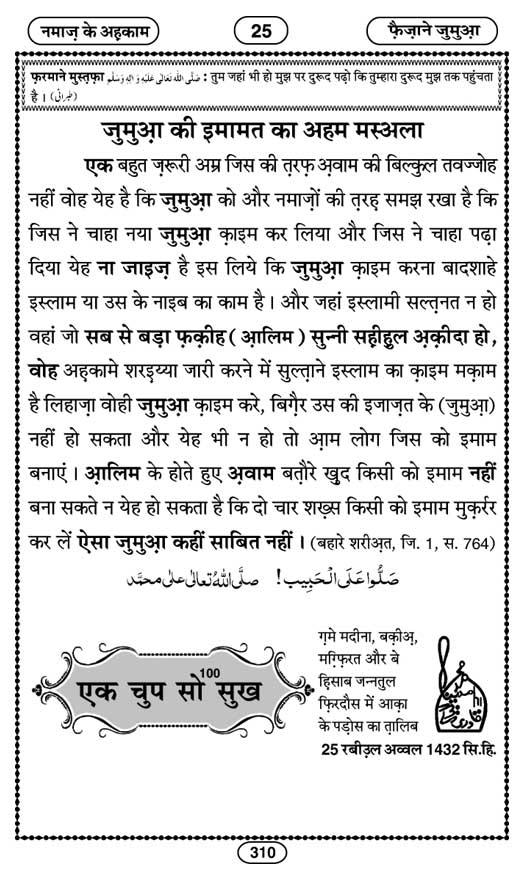 नमाज़ के अह़काम
25
फ़ैज़ाने जुमुआ़
फ़रमाने मुस्त़फ़ा صَلَّى اللهُ تَعَالٰى عَلَيْهِ وَاٰلِهٖ وَسَلَّم : तुम जहां भी हो मुझ पर दुरूद पढ़ो कि तुम्हारा दुरूद मुझ तक पहुंचता
है । (طبرانی)
जुमुआ़ की इमामत का अहम मस्अला
एक बहुत ज़रूरी अम्र जिस की त़रफ़ अ़वाम की बिल्कुल तवज्जोह
नहीं वोह येह है कि जुमुआ़ को और नमाज़ों की त़रह़ समझ रखा है कि
जिस ने चाहा नया जुमुआ़ क़ाइम कर लिया और जिस ने चाहा पढ़ा
दिया येह ना जाइज़ है इस लिये कि जुमुआ़ क़ाइम करना बादशाहे
इस्लाम या उस के नाइब का काम है । और जहां इस्लामी सल्त़नत न हो
वहां जो सब से बड़ा फ़क़ीह ( आ़लिम ) सुन्नी सह़ीह़ुल अ़क़ीदा हो,
वोह अह़कामे शरइ़य्या जारी करने में सुल्त़ाने इस्लाम का क़ाइम मक़ाम
है लिहाज़ा वोही जुमुआ़ क़ाइम करे, बिग़ैर उस की इजाज़त के (जुमुआ़)
नहीं हो सकता और येह भी न हो तो आ़म लोग जिस को इमाम
बनाएं । आ़लिम के होते हुए अ़वाम बत़ौरे खुद किसी को इमाम नहीं
बना सकते न येह हो सकता है कि दो चार शख़्स किसी को इमाम मुक़र्रर
कर लें ऐसा जुमुआ़ कहीं साबित नहीं । (बहारे शरीअ़त, जि. 1, स. 764)
صَلُّوا عَلَى الْحَبِيب! صلَّى اللهُ تعالىٰ على محمَّد
एक चुप सो 100 सुख
ग़मे मदीना, बक़ीअ़,
मग़्फ़िरत और बे
हिसाब जन्नतुल
फ़िरदौस में आक़ा
के पड़ोस का त़ालिब
25 रबीउ़ल अव्वल 1432 सि.हि.
310